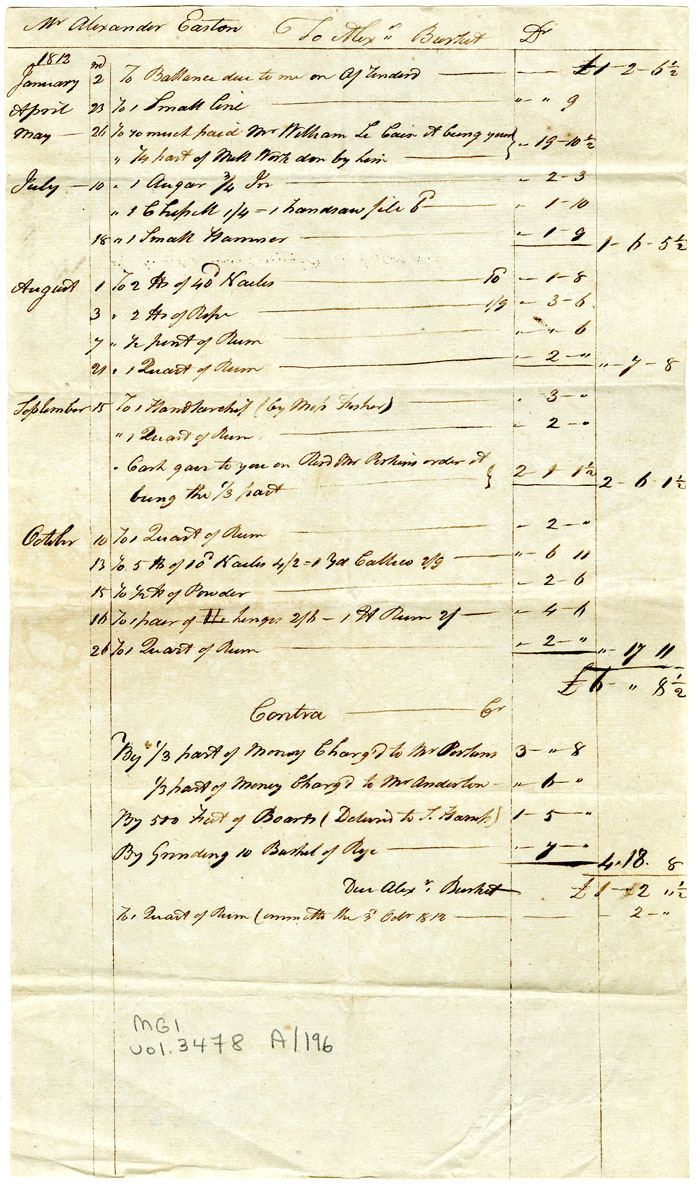 Mr Alexander Easton To Alexr Burket Dr
1812
January 2 To Ballance due to me on — £1-2-6½
April 23 To 1 Small Line " " 9
May 26 To so much paid Mr William Le Cain it being your
" ¼ part of Mill Work don by him } " 19-10½
July 10 " 1 Augar ¾ In " 2-3
" 1 Chissell 1/4 = 1 handsaw file 6 " 1-10
18 " 1 Small Hammer " 1-9 1-6-5½
August 1 To 2 lb of 4D Nailes 10 " 1-8
3 " 2 lb of Rope 1/9 " 3-6
7 " ½ pint of Rum " " 6
21 " 1 Quart of Rum " 2-" "-7-8
September 15 To 1 Handkarchif (by Miss Fisher) " 3-"
" 1 Quart of Rum " 2-"
" Cash gave to you on Revd Mr Perkins order it
being the 1/3 part } 2-1-1½ 2-6-1½
October 10 To 1 Quart of Rum " 2-"
13 To 5 lb of 10D Nailes 4/2 = 1 Yd Callico 2/9 " 6 11
15 To ½ lb of Powder " 2-6
16 To 1 pair of hinges 2/6 - 1 Qt Rum 2/ " 4-6
26 To 1 Quart of Rum " 2-" "-17 11
£6-" 8½
Contra Cr
By 1/3 part of Money Charg'd to Mr Perkins 3-" 8
1/3 part of Money Charg'd to Mr Anderson " 6-"
By 500 Feet of Boards (Delivered to 1-5 "
By Grinding 10 Bushel of Rye "-7-" 4.18.8
Due Alexr Burket £1-2 "½
To 1 Quart of Rum (ommitted the 3d Octr 1812 2-"
MG1
vol.3478 A/196